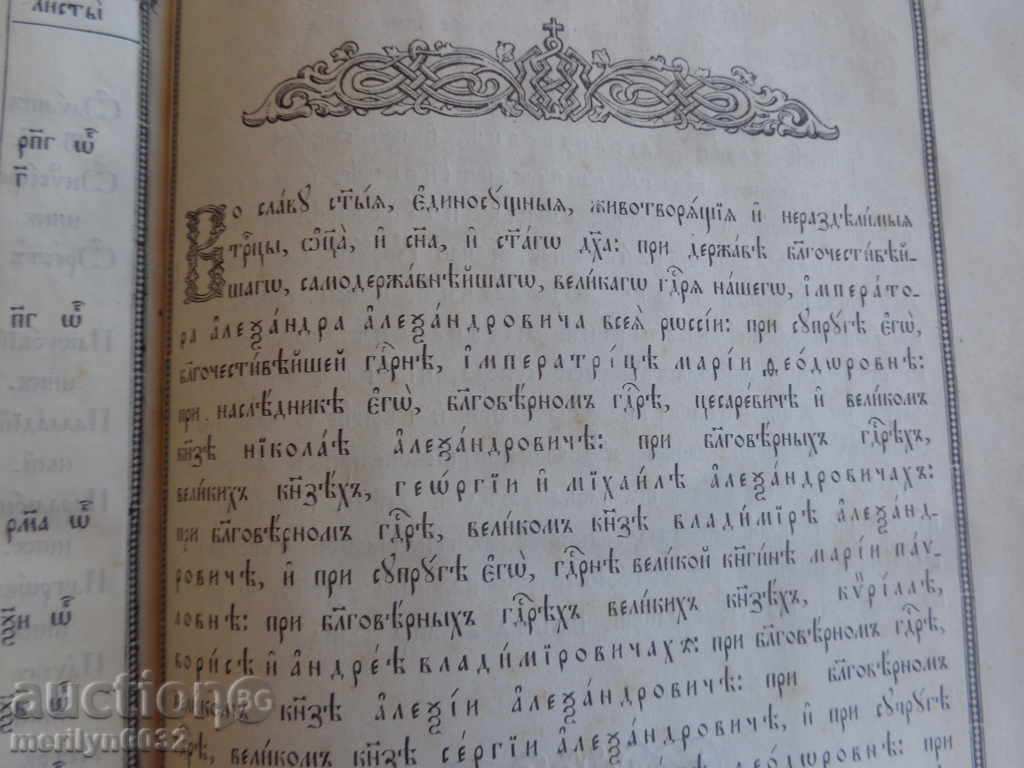 листы̀
рп҃г ѡ҆б
п҃г ѡ҆б
рм҃а ѡ҆б
Во сла́вꙋ ст҃ы́ѧ, є҆диносꙋ́щныѧ, животворѧ́щїѧ и҆ нераздѣ́лимыѧ
трⷪ҇цы, ѻ҆ц҃а̀, и҆ сн҃а, и҆ ст҃а́гѡ дх҃а: при держа́вѣ бл҃гочести́вѣй-
шагѡ, самодержа́внѣйшагѡ, вели́кагѡ гдⷭ҇рѧ на́шегѡ, і҆мпера́то-
ра а҆леѯа́ндра а҆леѯа́ндровича всеѧ̀ рѡссі́и: при сꙋпрꙋ́гѣ є҆гѡ̀,
бл҃гочести́вѣйшей гдⷭ҇рнѣ, і҆мператрі́цѣ марі́и ѳео́дѡровнѣ:
при наслѣ́дникѣ є҆гѡ̀, бл҃говѣ́рномъ гдⷭ҇рѣ, цесаре́вичѣ и҆ вели́комъ
кн҃зѣ нїкола́ѣ а҆леѯа́ндровичѣ: при бл҃говѣ́рныхъ гдⷭ҇рѣхъ,
вели́кихъ кн҃зѣхъ, геѡ́ргїи и҆ мїхаи́лѣ а҆леѯа́ндровичахъ:
при бл҃говѣ́рномъ гдⷭ҇рѣ, вели́комъ кн҃зѣ влади́мїрѣ а҆леѯа́нд-
ровичѣ, и҆ при сꙋпрꙋ́гѣ є҆гѡ̀, гдⷭ҇рнѣ вели́кой кн҃ги́нѣ марі́и па́ѵ-
ловнѣ: при бл҃говѣ́рныхъ гдⷭ҇рѣхъ вели́кихъ кн҃зѣхъ, кѷрі́ллѣ,
бори́сѣ и҆ а҆ндре́ѣ влади́мїровичахъ: при бл҃говѣ́рномъ гдⷭ҇рѣ,
вели́комъ кн҃зѣ а҆леѯі́и а҆леѯа́ндровичѣ: при бл҃говѣ́рномъ
гдⷭ҇рѣ, вели́комъ кн҃зѣ се́ргїи а҆леѯа́ндровичѣ, и҆ при сꙋпрꙋ́гѣ
ѳео́дѡровнѣ: при
auction BG
merilyn6032